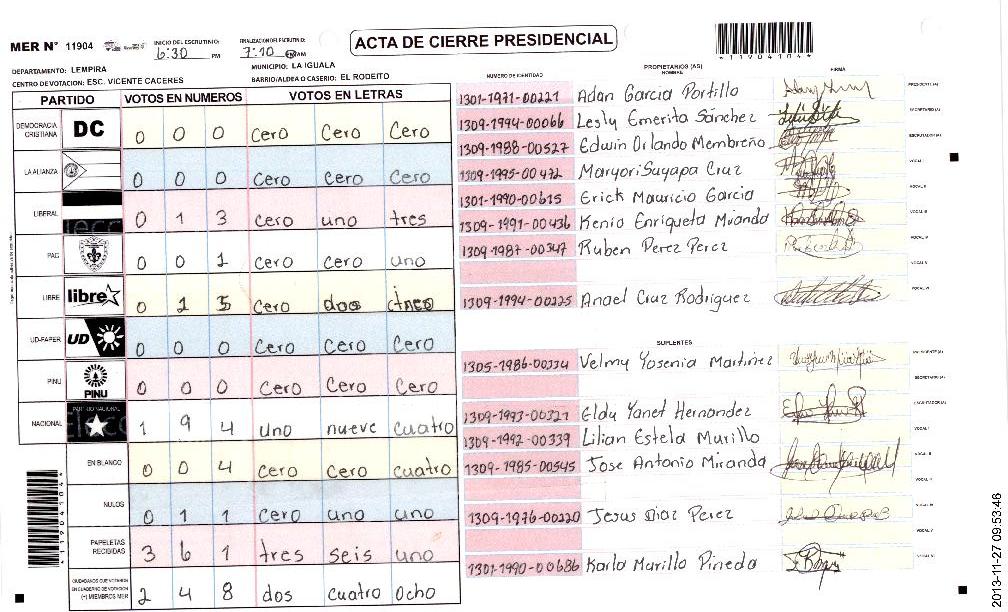 MER N° 11904
INICIO DEL ESCRUTINIO: 6:30 PM
FINALIZACION DEL ESCRUTINIO: 7:10 AM
ACTA DE CIERRE PRESIDENCIAL
*11904104*
DEPARTAMENTO: LEMPIRA
MUNICIPIO: LA IGUALA
CENTRO DE VOTACION: ESC. VICENTE CACERES
BARRIO/ALDEA O CASERIO: EL RODEITO
PARTIDO VOTOS EN NUMEROS VOTOS EN LETRAS
DEMOCRACIA CRISTIANA DC 0 0 0 Cero Cero Cero
LA ALIANZA 0 0 0 Cero Cero Cero
LIBERAL 0 1 3 cero uno tres
PAC 0 0 1 Cero Cero uno
LIBRE libre 0
UD-FAPER UD 0 0 0 Cero Cero Cero
PINU PINU 0 0 0 Cero Cero Cero
NACIONAL PARTIDO NACIONAL 1 9 4 uno nueve cuatro
EN BLANCO 0 0 4 Cero Cero cuatro
NULOS 0 1 1 Cero uno uno
PAPELETAS RECIBIDAS 3 6 1 tres seis uno
CIUDADANOS QUE VOTARON EN CUADERNO DE VOTACION (+) MIEMBROS MER 2 4 8 dos cuatro Ocho
*11904104*
NUMERO DE IDENTIDAD PROPIETARIOS (AS) NOMBRE FIRMA
1301-1971-00221 Adan Garcia Portillo PRESIDENTE (A)
1309-1994-00066 Lesly Emerita Sánchez SECRETARIO (A)
1309-1988-00527 Edwin Orlando Membreño ESCRUTADOR (A)
1309-1995-00472 Maryori Suyapa Cruz VOCAL I
1301-1990-00615 Erick Mauricio Garcia VOCAL II
1309-1991-00436 Kenia Enriqueta VOCAL III
1309-1987-00347 Ruben Perez Perez VOCAL IV
VOCAL V
1309-1994-00225 Anael Cruz Rodriguez VOCAL VI
SUPLENTES
1305-1986-00334 Velmy Yosenia Martinez PRESIDENTE (A)
SECRETARIO (A)
1309-1993-00321 Eldy Yanet Hernandez ESCRUTADOR (A)
1309-1992-00339 Lilian Estela Murillo VOCAL I
1309-1985-00545 Jose Antonio Miranda VOCAL II
1309-1976-00220 Jesus Diaz Perez
VOCAL V
1301-1990-00686 Karla Murillo Pineda VOCAL VI
2013-11-27 09:53:46